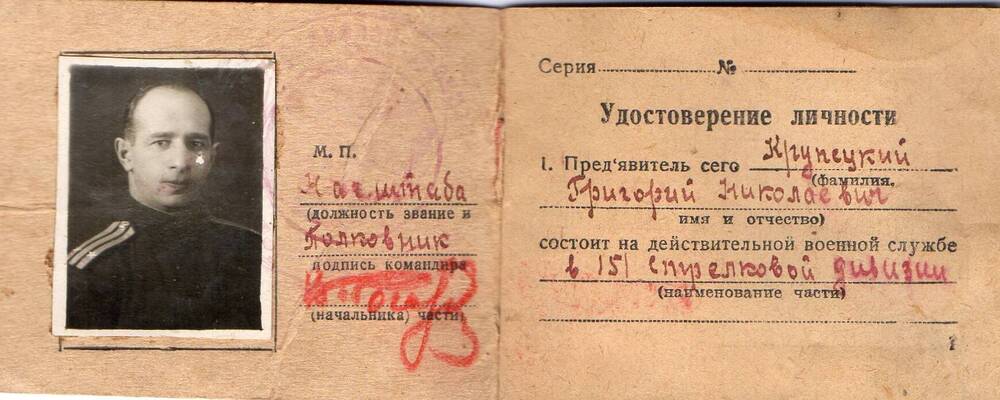 М. П.
Нач. штаба
(должность звание и
Полковник
подпись командира
(начальника) части)
Серия № 
Удостоверение личности
1. Пред'явитель сего Крупецкий
(фамилия,
Григорий Николаевич
имя и отчество)
состоит на действительной военной службе
в 151 стрелковой дивизии
(наименование части)
1